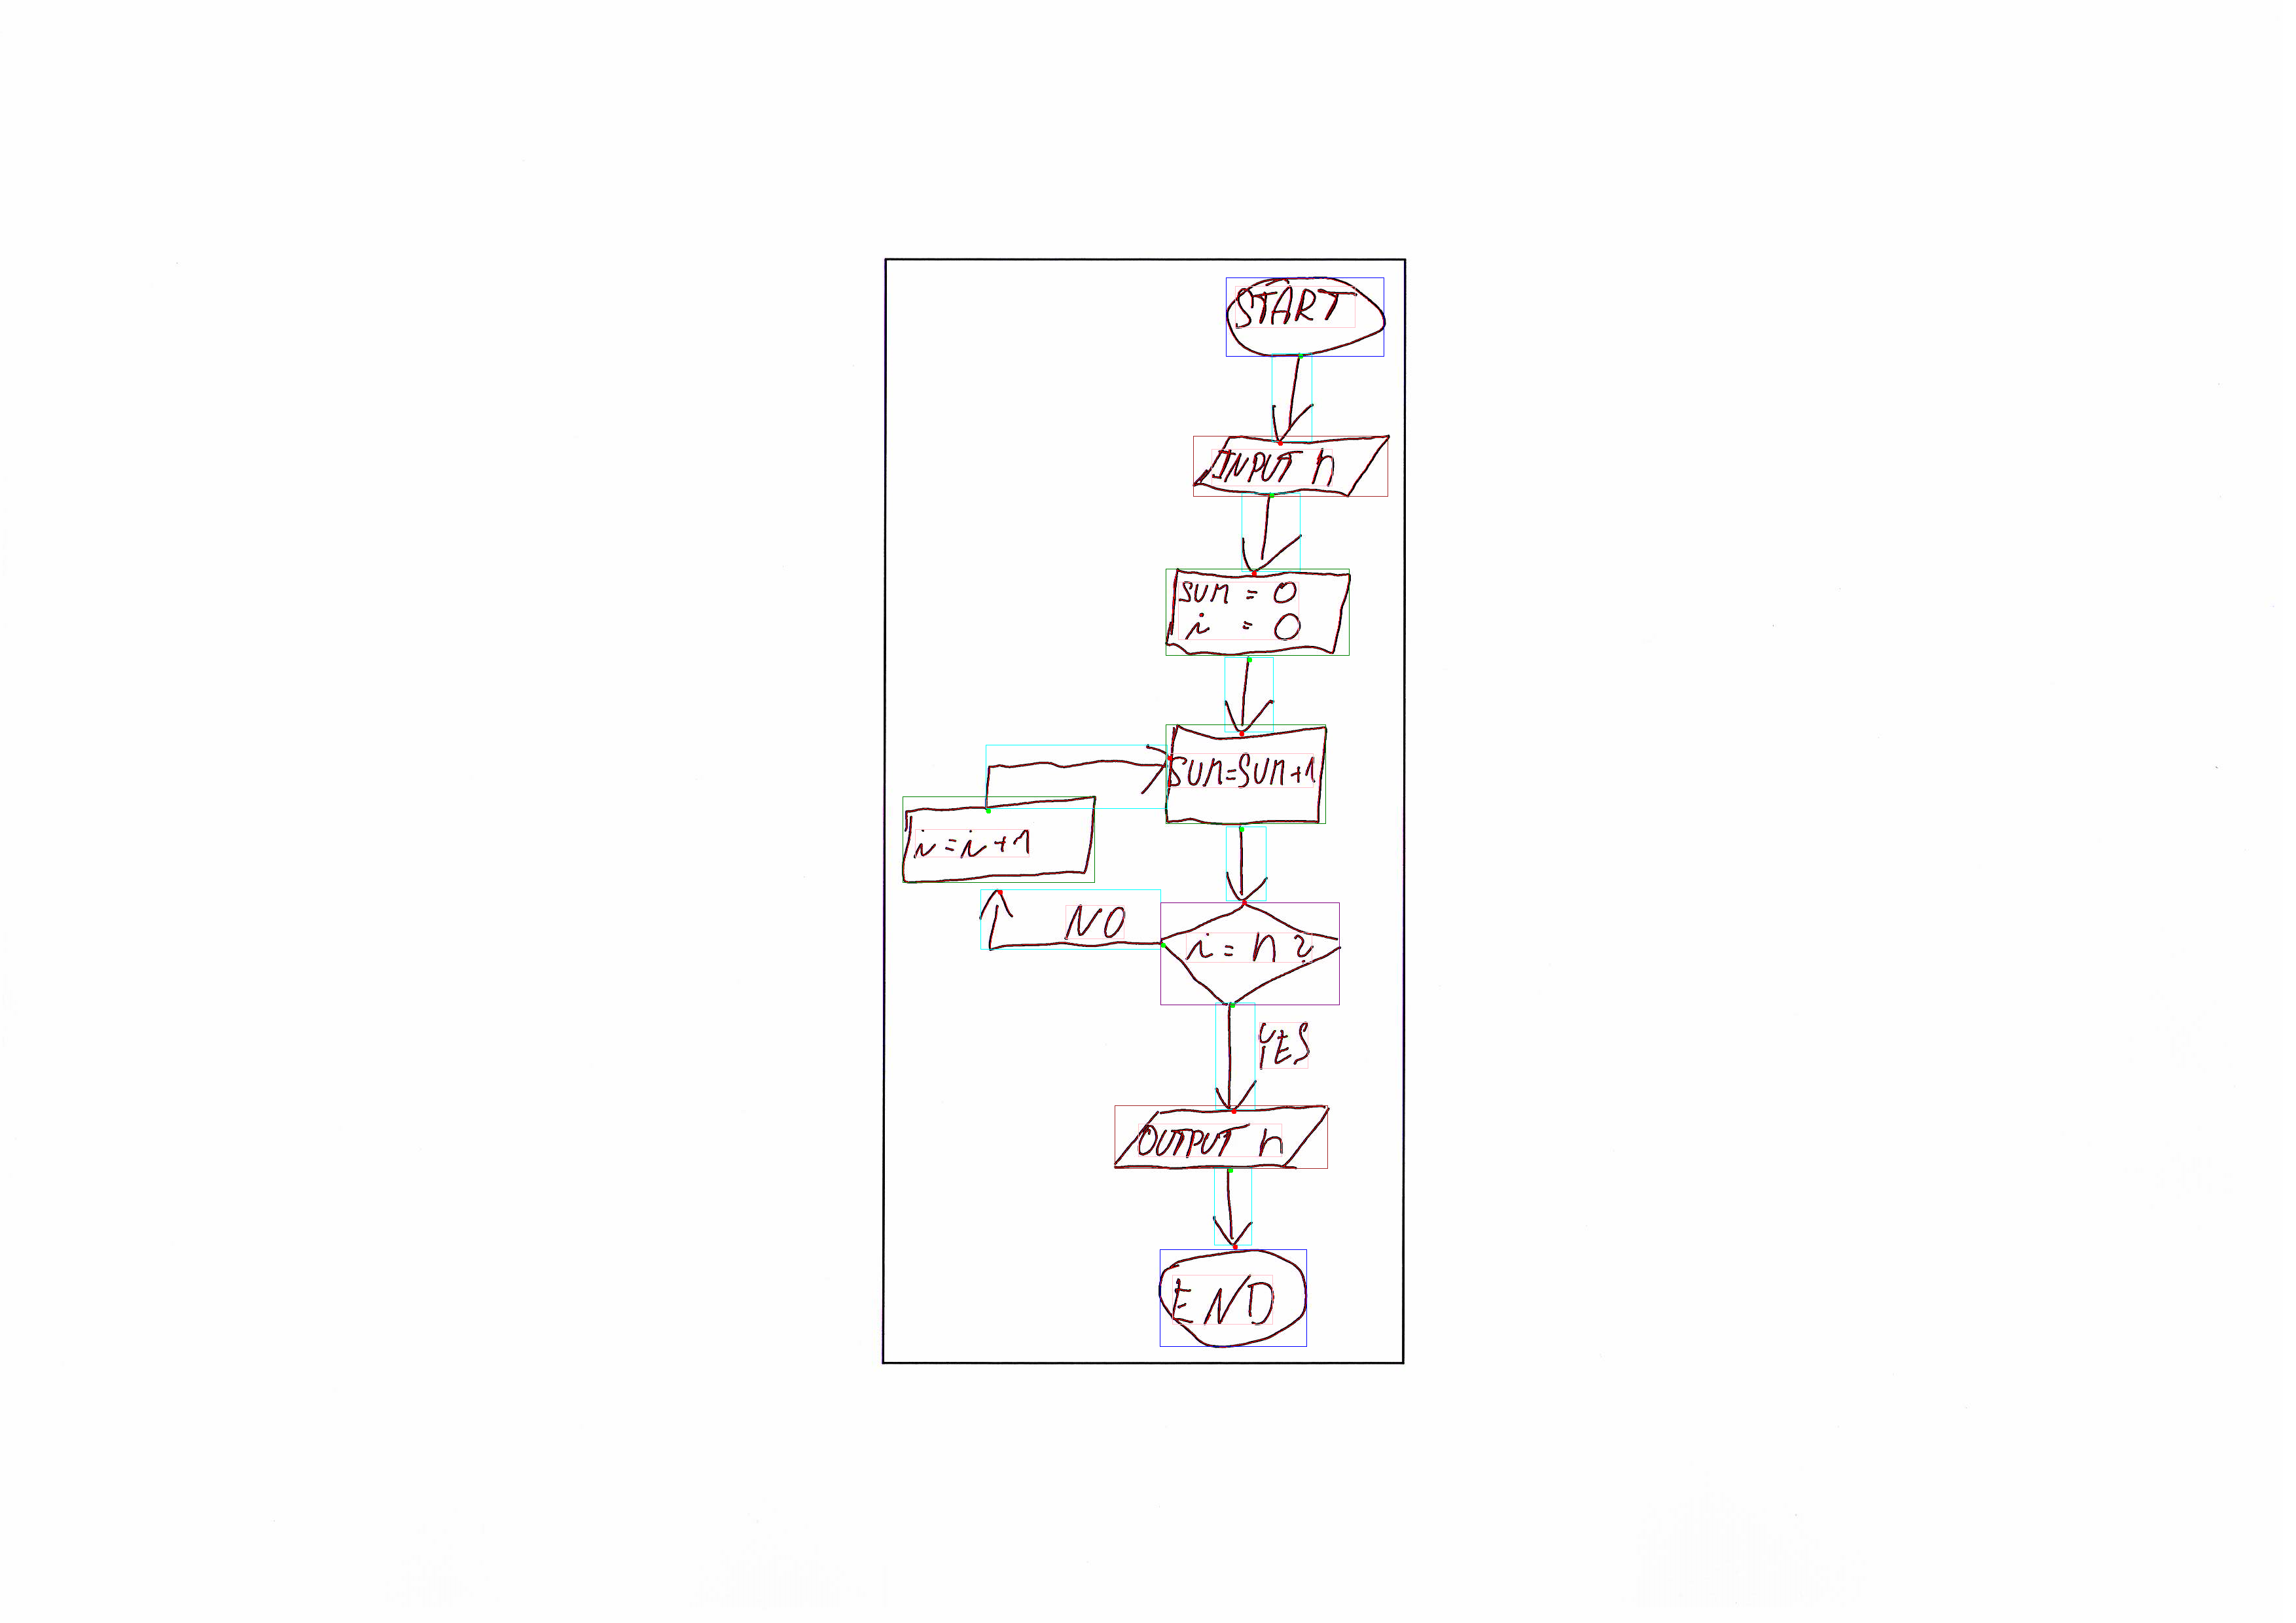 START
INPUT n
SUM = 0
i = 0
SUM=SUM+1
i=i+1
NO
i = n ?
YES
OUTPUT n
END